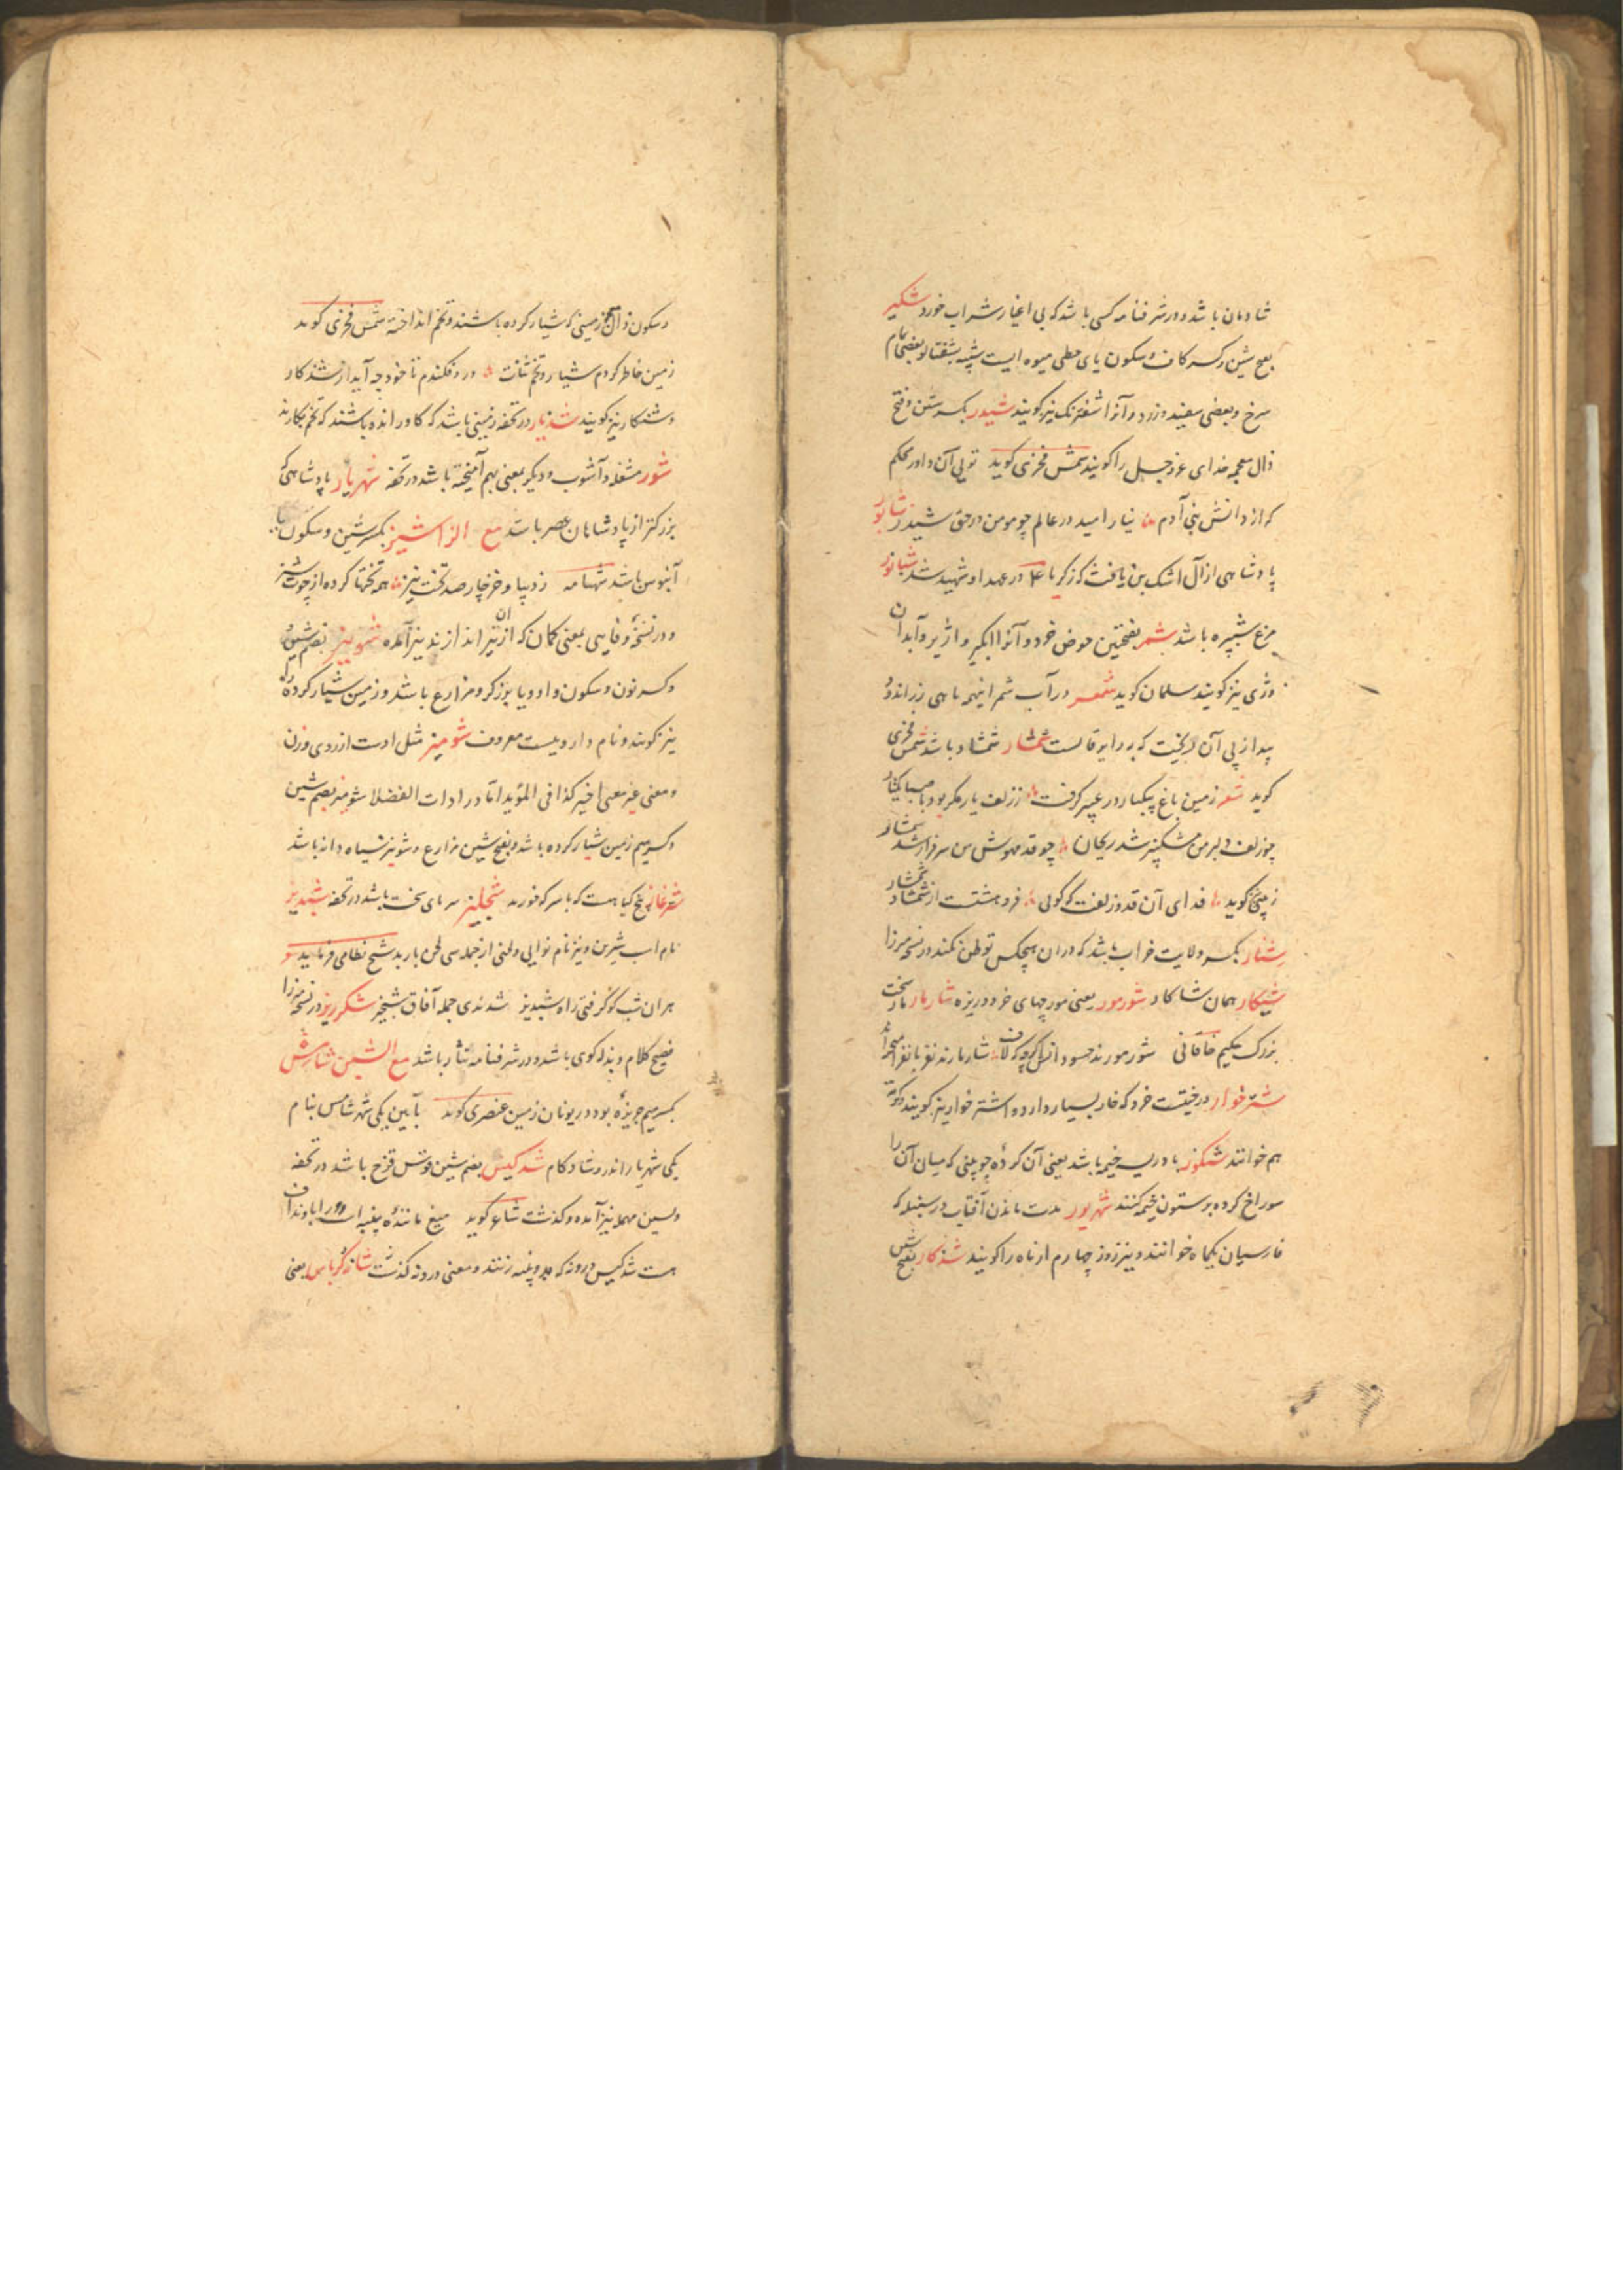 شادمان باشد و در شرفنامه کسی باشد که بی اغیار شراب خورد شکیر
بفتح شین و کسر کاف و سکون یای حطی میوه ایست شبیه بشفتالو بعضی تمام
سرخ و بعضی سفید و زرد و آنرا شفترنک نیز کویند شیدر بکسر شین و فتح
ذال معجمه خدای عز و جل را کویند شمس فخری کوید تویی آن داور محکم
که از دانش بنی آدم نیارامید در عالم چو مومن در حق شیدر شاپور
پادشاهی از آل اشک بن یافث که زکریا ع در عهد او شهید شد شبانور
مرغ شبپره باشد شمر بفتحتین حوض خرد و آنرا ابکیر و اژیر و آبدان
و ژی نیز کویند سلمان کوید شعر در آب شمر اینهمه ماهی زر اندود
پیدا از پی آن ریخت که بر رایر قالست شمشار شمشاد باشد شمس فخری
کوید شعر زمین باغ پیکبار در عبیر کرفت ز زلف یار مکر بود با صبا یکبار
چو زلف دلبر من مشکبیز شد ریحان چو قد مهوش من سرفراز شد شمشار
زمخنج کوید فدای آن قد و زلفت که کویی فرو هشتت از شمشاد شمشار
شنار بکسر ولایت خراب باشد که در ان هیچکس توطن نکند در نسخه میرزا
شیکار همان شاکار شورمور یعنی مورچهای خرد و ریزه شارمار مار سخت
بزرک حکیم خاقانی شور مورند حسود انکرچه که لاف شارمارند نفر با نفر
شترخوار درختیست خرد که خار بسیار دارد و اشترخوار نیز کویند و کوته
هم خوانند شنکور بادریسه خیمه باشد یعنی آن کرده چوپینی که میان آن را
سوراخ کرده بر ستون خیمه کنند شهریور مدت ماندن آفتاب در سنبله که
فارسیان یکماه خوانند و نیز روز چهارم از ماه را کویند شدکار بفتح شین
و سکون ذال معجمه زمینی که شیار کرده باشند و تخم انداخته شمس فخری کوید
زمین خاطر کردم شیار و تخم ثنات در و فکندم تا خود چه آید از شدکار
و شنکار نیز کویند شدیار در تحفه زمینی باشد که کاو رانده باشند که تخم بکارند
شور مشغله و آشوب و دیکر بمعنی بهم آمیخته باشد در تحفه شهریار پادشاهی که
بزرکتر از پادشاهان عصر باشد مع الزا شیز بکسر شین و سکون یا
آبنوس باشد شهنامه ز دیبا و خز چار صد تخت نیز همه تختها کرده از چوب شیز
و در نسخه وفایی بمعنی کمان که ازان تیر اندازند نیز آمده شونیز بضم شین
و کسر نون و سکون واو و یا بوزکر و مزارع باشد و زمین شیار کرده را
نیز کویند و نام داروییست معروف شومیز مثل اوست از روی وزن
و معنی غیر معنی اخیر کذا فی المؤید اما در ادات الفضلا شومیز بضم شین
و کسر میم زمین شیار کرده باشد و بفتح شین مزارع و شونیز سیاه دانه باشد
شترغاز بیخ کیاهست که با سرکه خورند شجلیز سرمای سخت باشد در تحفه شبدیز
نام اسب شیرین و نیز نام نوایی و لحنی از جمله سی لحن باربد شیخ نظامی فرماید شعر
هر ان شب کو کرفتی راه شبدیز شدندی جمله آفاق شبخیز شکرریز در نسخه میرزا
فصیح کلام و بذله کوی باشد و در شرفنامه نثار باشد مع الشین شامس
بکسر میم جزیره بود در یونان زمین عنصری کوید بآیین یکی شهر شامس بنام
یکی شهریار اندر و شادکام شدکیس بضم شین قوس قزح باشد در تحفه
و بسین مهمله نیز آمده و کذشت شاعر کوید میغ ماننده پنبه است و ورا باد نداف
هست شدکیس درونه که بدو پنبه زنند و معنی درونه کذشت شانه کرباس یعنی